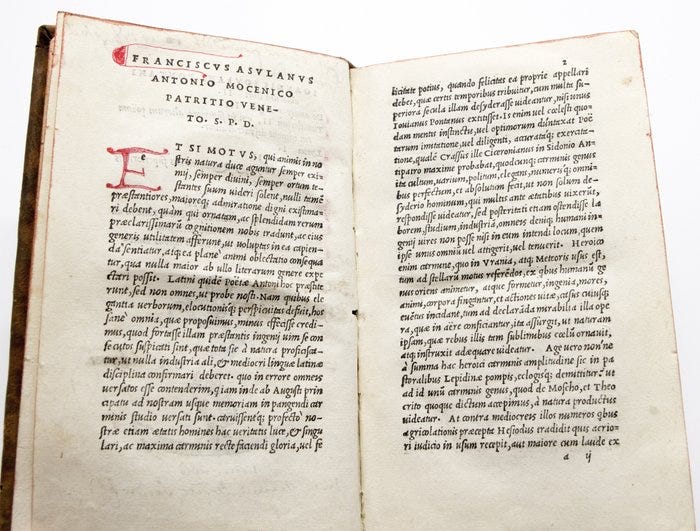 FRANCISCVS ASVLANVS
ANTONIO MOCENICO
PATRITIO VENE-
TO. S. P. D.
ET SI MOTVS, qui animis in no
stris natura duce aguntur semper exi
mij, semper diuini, semper ortum te-
stantes suum uideri solent, nulli tamē
præstantiores, maioreq; admiratione digni existima-
ri debent, quàm qui ornatum, ac splendidam rerum
præclarissimarū cognitionem nobis tradunt, ac eius
generis utilitatem afferunt, ut uoluptas in ea capien-
da sentiatur, atq; ea planè animi oblectatio consequa
tur, qua nulla maior ab ullo literarum genere expe
ctari possit. Latini quidē Poëtæ Antoni hoc præstite
runt, sed non omnes, ut probe nosti. Nam quibus ele
gantia uerborum, elocutionisq; perspicuitas defuit, hos
sanè omnia, quæ proposuimus, minus effecisse credi-
mus, quod fortasse illam præstantis ingenij uim se con
se cutos suspicati sunt, quæ tota sic à natura proficisca-
tur, ut nulla industria ali, & mediocri linguæ latinæ
disciplina confirmari deberet. quo in errore omneis
uersatos esse contenderim, quiam inde ab Augusti prin
cipatu ad nostram usque memoriam in pangendi car
minis studio uersati sunt. caruissentq; profectò no-
stræ etiam ætatis homines hac ueritatis luce, & singu
lari, ac maxima carminis recte faciendi gloria, uel fe
2
licitate potius, quando felicitas ea proprie appellari
debet, quæ certis temporibus tribuitur, cum multa su-
periora secula illam desyderasse uideantur, nisi unus
Iouianus Pontanus extitisset. Is enim uel cœlesti quo-
dam mentis instinctu, uel optimorum dūtaxat Poë
tarum imitatione, uel diligenti, accurataq; exercita-
tione, qualē Crassus ille Ciceronianus in Sidonio An-
tipatro maxime probabat, quodcunq; carminis genus
ita cultum, uarium, politum, elegans, numerisq; omni-
bus perfectum, et absolutum fecit, ut non solum de-
syderio hominum, qui multis ante ætatibus uixerūt,
respondisse uideatur, sed posteritati etiam ostendisse la
borem, studium, industriā, omneis deniq; humani in-
genij uires non posse nisi in eum intendi locum, quem
ipse unus omniū uel attigerit, uel tenuerit. Heroico
enim carmine, quo in Vrania, atq; Meteoris usus est,
tum ad stellarū motus referēdos, ex qbus humanū ge
nus oriens animetur, atque formetur, ingenia, mores,
animi, corpora fingantur, et actiones uitæ, casus cuiusq;
euētus incidant, tum ad declarāda mirabilia illa ope
ra, quæ in aëre conficiantur, ita assurgit, ut naturam
ipsam, quæ rebus illis tam sublimibus cœlū ornauit,
atq; instruxit adæquare uideatur. Age uero non'ne
à summa hac heroici carminis amplitudine sic in pa
storalibus Lepidinæ pompis, eclogisq; demittitur ut
ad id unū carminis genus, quod de Moscho, et Theo
crito quoque dictum accepimus, à natura productus
uideatur. At contra mediocreis illos numeros qbus
agricolationis præcepta Hesiodus tradidit quis aerio-
ri iudicio in usum recepit, aut maiore cum laude ex
a ij